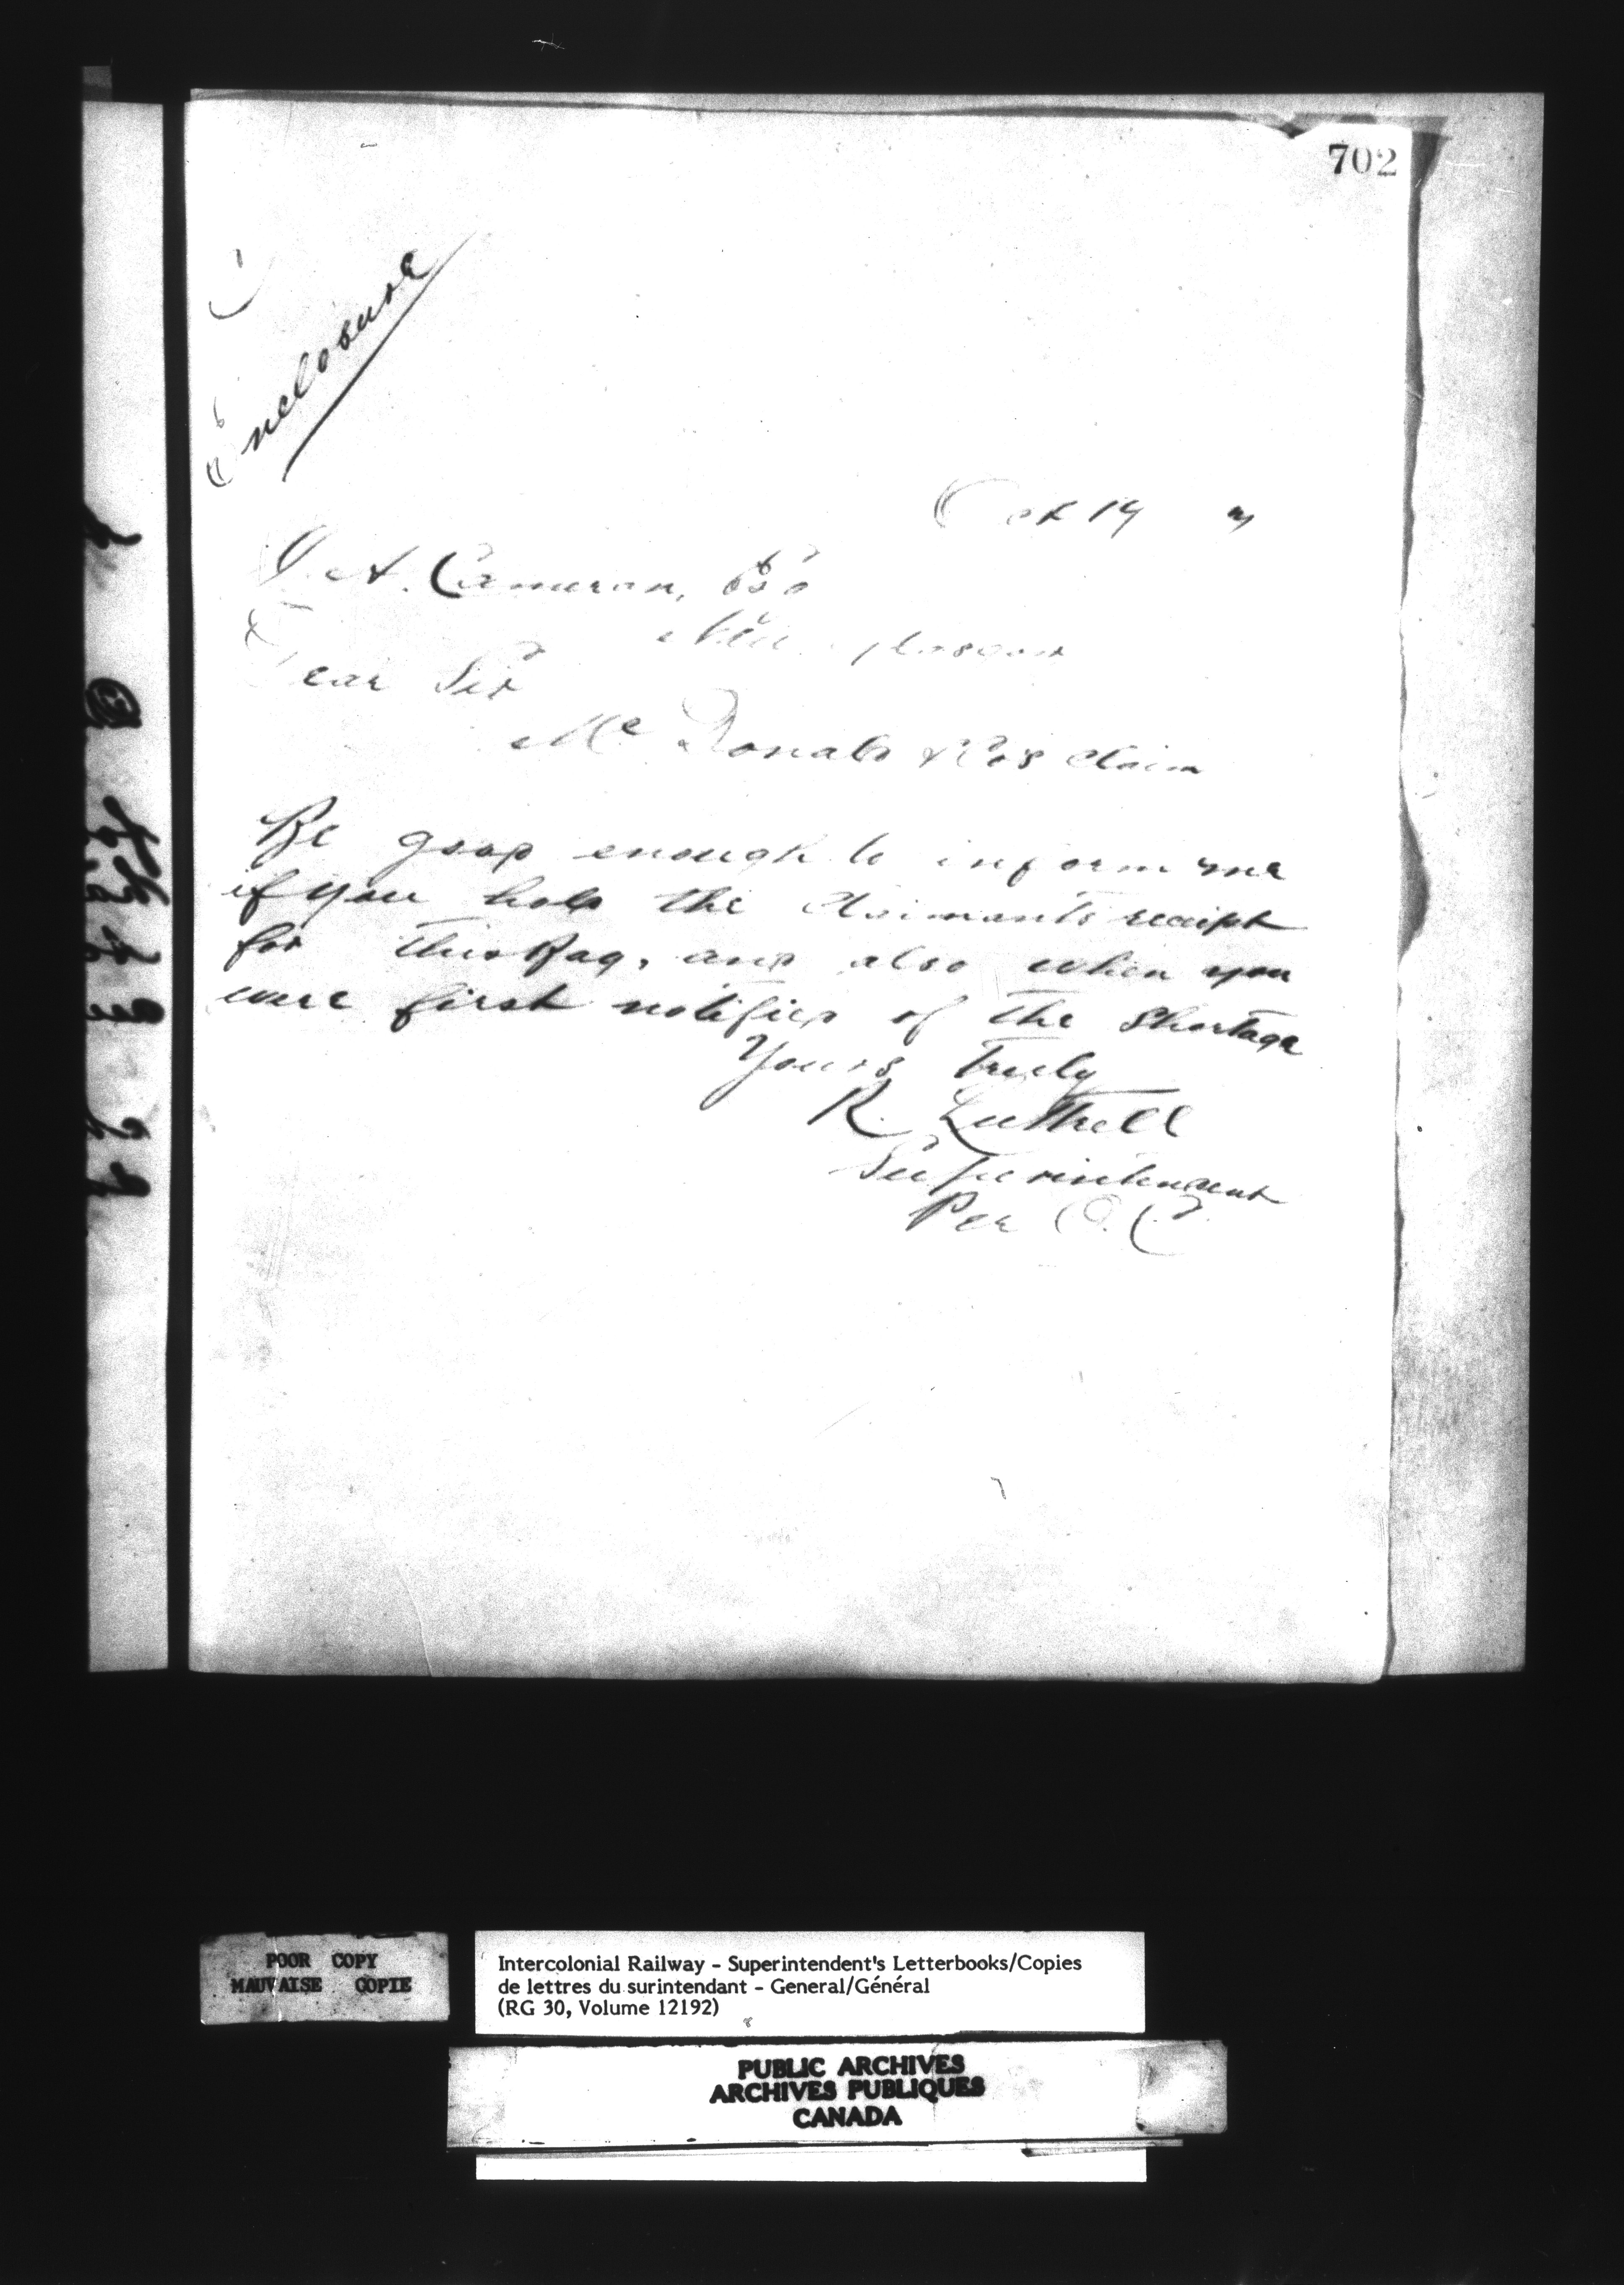 702
Enclosure
Oct 19
A. Cameron, Esq
New Glasgow
Dear Sir
McDonald & Co's claim
Be good enough to inform me
if you hold the claimants receipt
for this Bag, and also when you
were first notified of the shortage
Yours truly
R. Luttrell
Superintendent
Per
POOR COPY
MAUVAISE COPIE
Intercolonial Railway - Superintendent's Letterbooks/Copies
de lettres du surintendant - General/Général
(RG 30, Volume 12192)
PUBLIC ARCHIVES
ARCHIVES PUBLIQUES
CANADA